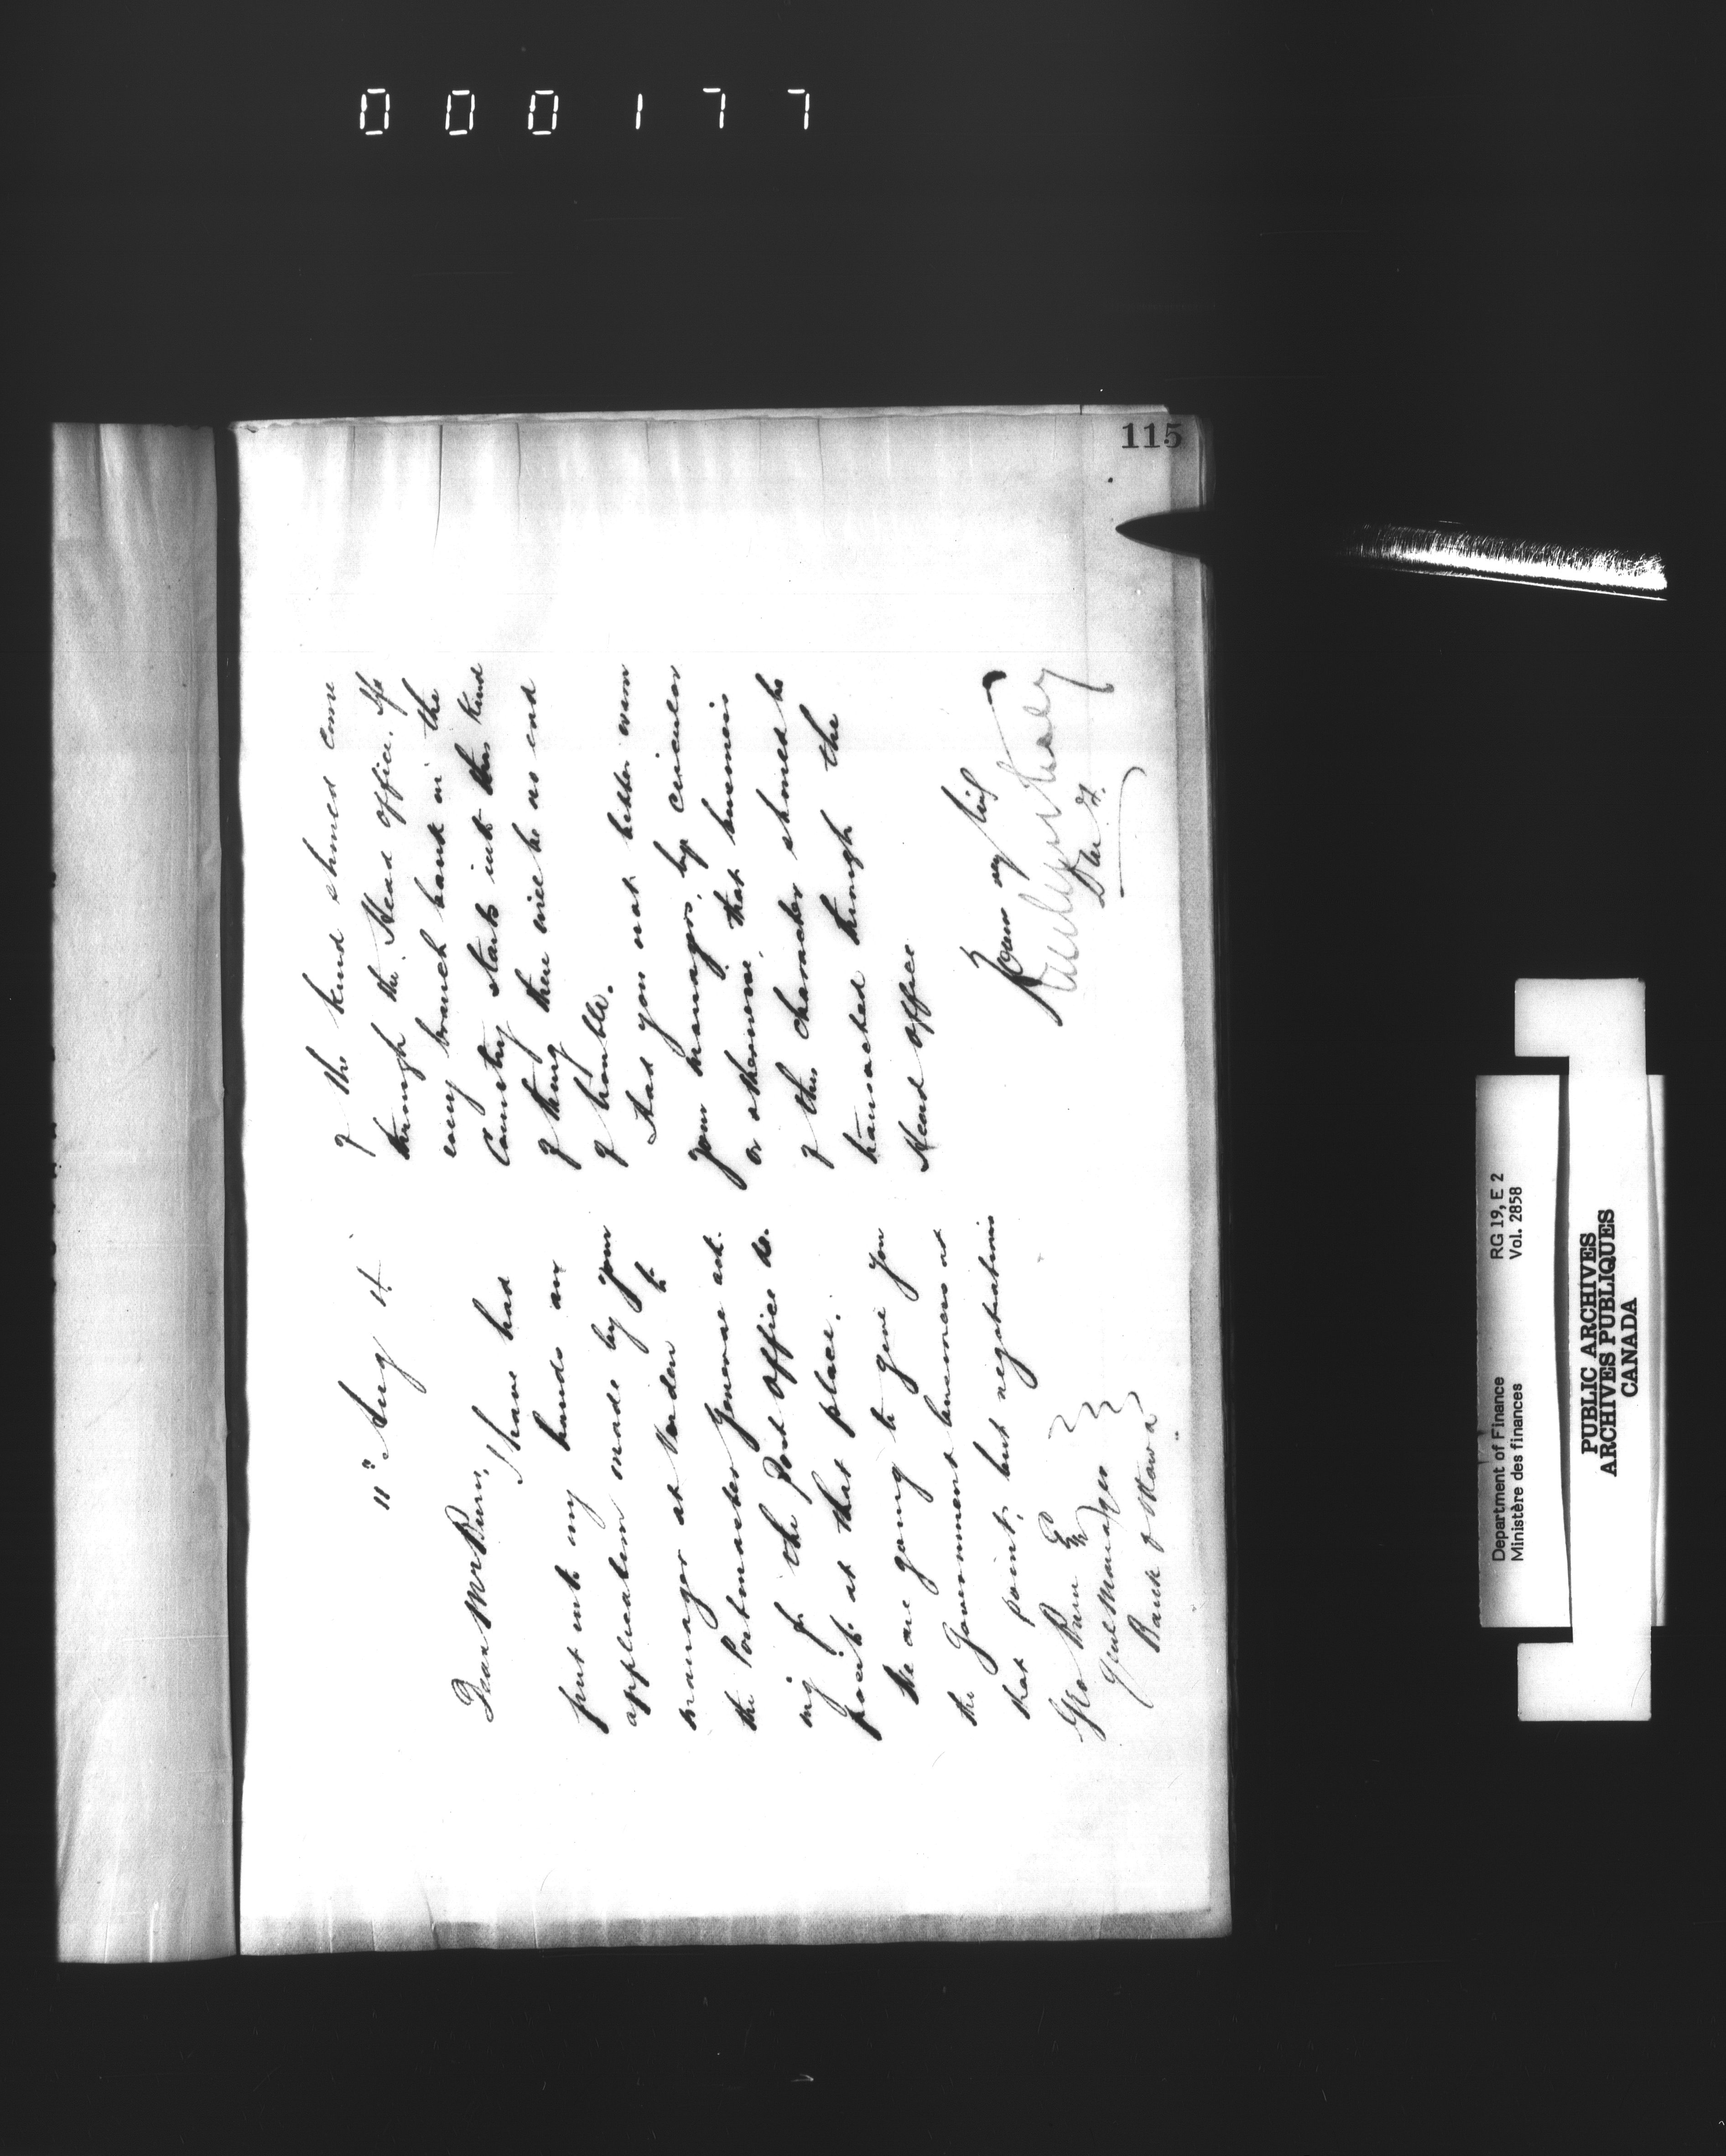 000177
115
11th Aug 4
Dear Mr Burn,
I have had
put into my hands an
application made by your
manager at Virden to
the Postmaster General ask-
ing for the Post Office de-
posits at that place.
We are going to give you
the Government business at
that point, but negotiations
Geo Burn Esq
Genl Manager
Bank of Ottawa
of the kind should come
through the Head Office. If
every branch bank in the
Country starts into this kind
of thing there will be no end
of trouble.
Had you not better warn
your managers, by circular
or otherwise, that business
of this character should be
transacted through the
Head Office
Yours very truly
D M F.
Department of Finance RG 19, E 2
Ministère des finances Vol. 2858
PUBLIC ARCHIVES
ARCHIVES PUBLIQUES
CANADA